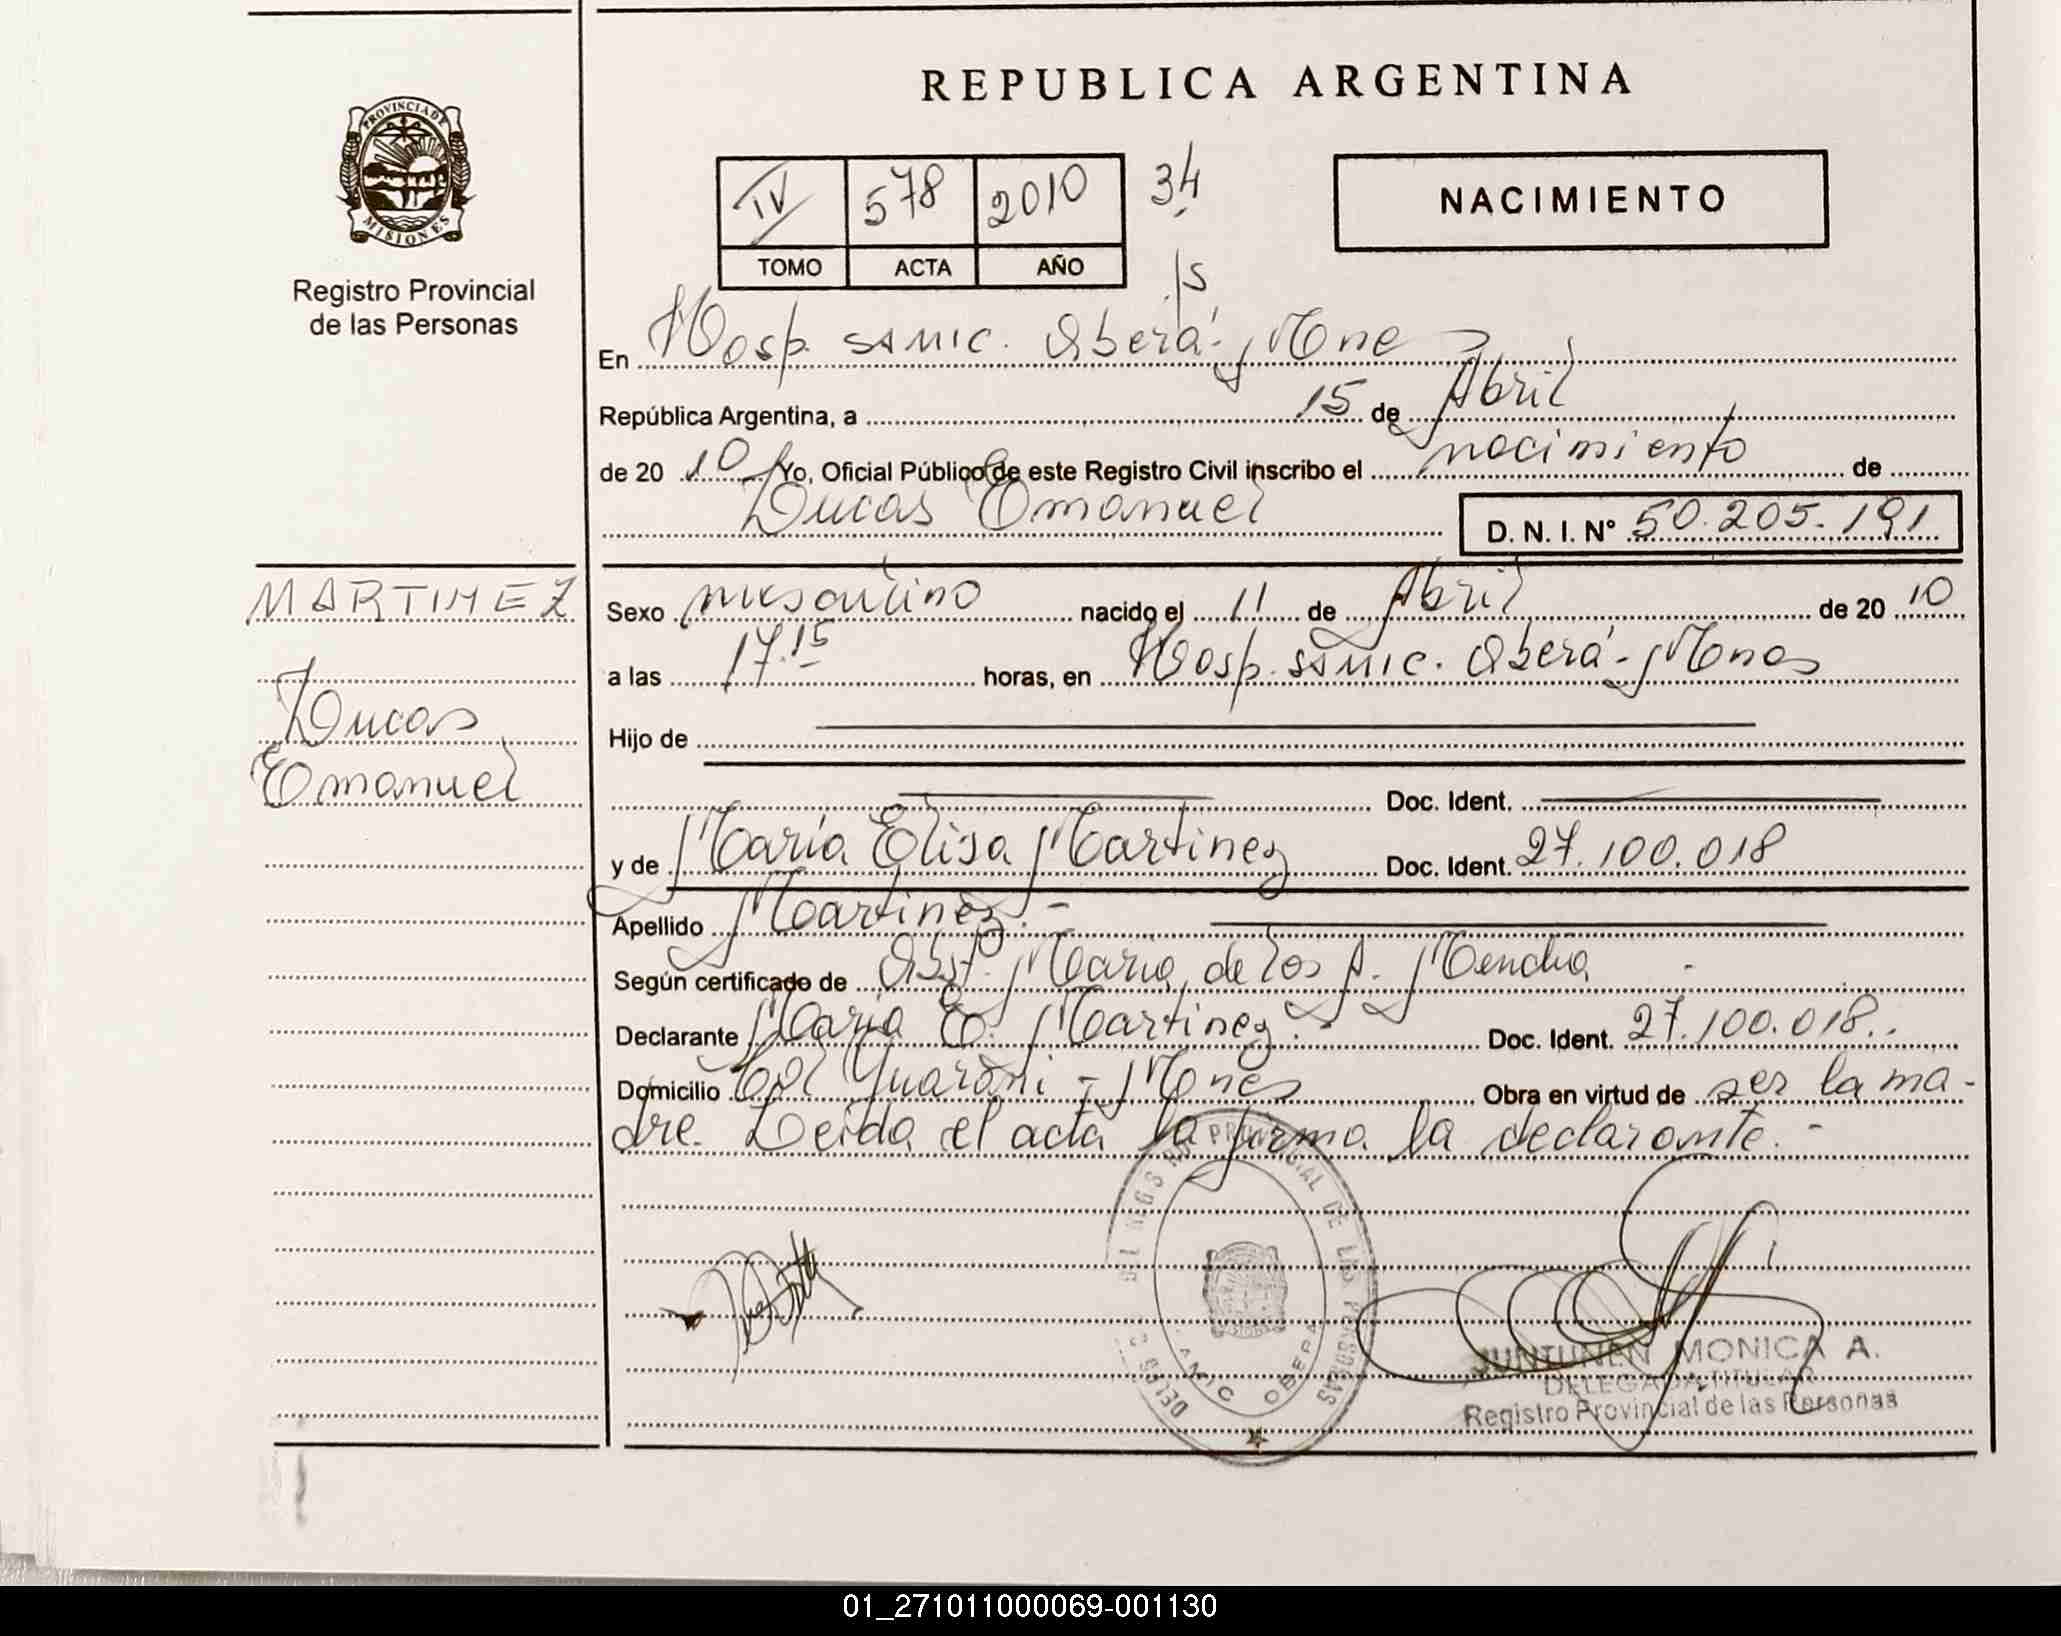 REPUBLICA ARGENTINA
PROVINCIA DE MISIONES
Registro Provincial
de las Personas
IV 578 2010 34
TOMO ACTA AÑO
NACIMIENTO
15
En Hosp. SAMIC. Oberá - Mnes
República Argentina, a 15 de Abril
de 20 10 Yo, Oficial Público de este Registro Civil inscribo el nacimiento de
Lucas Emanuel D. N. I. Nº 50.205.191
MARTINEZ
Lucas
Emanuel
Sexo masculino nacido el 11 de Abril de 20 10
a las 17.15 horas, en Hosp. SAMIC. Oberá - Mnes
Hijo de
Doc. Ident.
y de María Elisa Martinez Doc. Ident. 27.100.018
Apellido Martinez.-
Según certificado de Obst. María de los A.
Declarante María E. Martinez.- Doc. Ident. 27.100.018.
Domicilio Col Guaraní - Mnes Obra en virtud de ser la ma-
dre. Leida el acta la firma la declarante.-
REGISTRO PROVINCIAL DE LAS PERSONAS
SAMIC OBERA
JUNTUNEN MONICA A.
DELEGADA TITULAR
Registro Provincial de las Personas
01_271011000069-001130